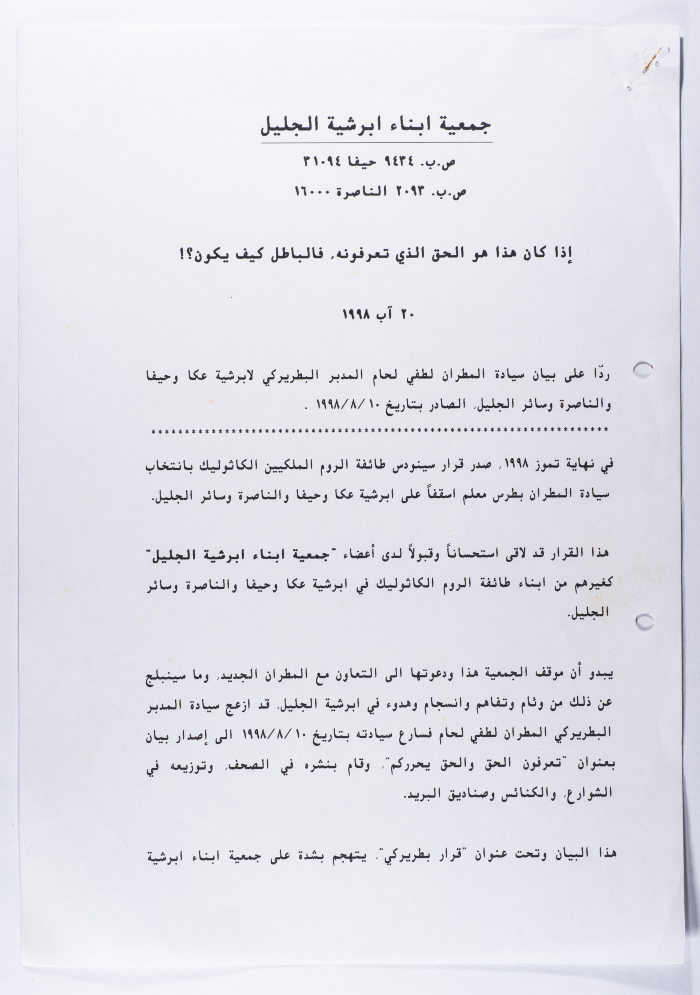 جمعية ابناء ابرشية الجليل
ص.ب. ٩٤٣٤ حيفا ٣١٠٩٤
ص.ب. ٢٠٩٣ الناصرة ١٦٠٠٠
إذا كان هذا هو الحق الذي تعرفونه، فالباطل كيف يكون؟!
٢٠ آب ١٩٩٨
ردّا على بيان سيادة المطران لطفي لحام المدبر البطريركي لابرشية عكا وحيفا
والناصرة وسائر الجليل، الصادر بتاريخ ١٩٩٨/٨/١٠ .
********************************************************************
في نهاية تموز ١٩٩٨، صدر قرار سينودس طائفة الروم الملكيين الكاثوليك بانتخاب
سيادة المطران بطرس معلم اسقفاً على ابرشية عكا وحيفا والناصرة وسائر الجليل.
هذا القرار قد لاقى استحساناً وقبولاً لدى أعضاء "جمعية ابناء ابرشية الجليل"
كغيرهم من ابناء طائفة الروم الكاثوليك في ابرشية عكا وحيفا والناصرة وسائر
الجليل.
يبدو أن موقف الجمعية هذا ودعوتها الى التعاون مع المطران الجديد، وما سينبلج
عن ذلك من وئام وتفاهم وانسجام وهدوء في ابرشية الجليل، قد ازعج سيادة المدبر
البطريركي المطران لطفي لحام فسارع سيادته بتاريخ ١٩٩٨/٨/١٠ الى إصدار بيان
بعنوان "تعرفون الحق والحق يحرركم"، وقام بنشره في الصحف، وتوزيعه في
الشوارع، والكنائس وصناديق البريد.
هذا البيان وتحت عنوان "قرار بطريركي"، يتهجم بشدة على جمعية ابناء ابرشية